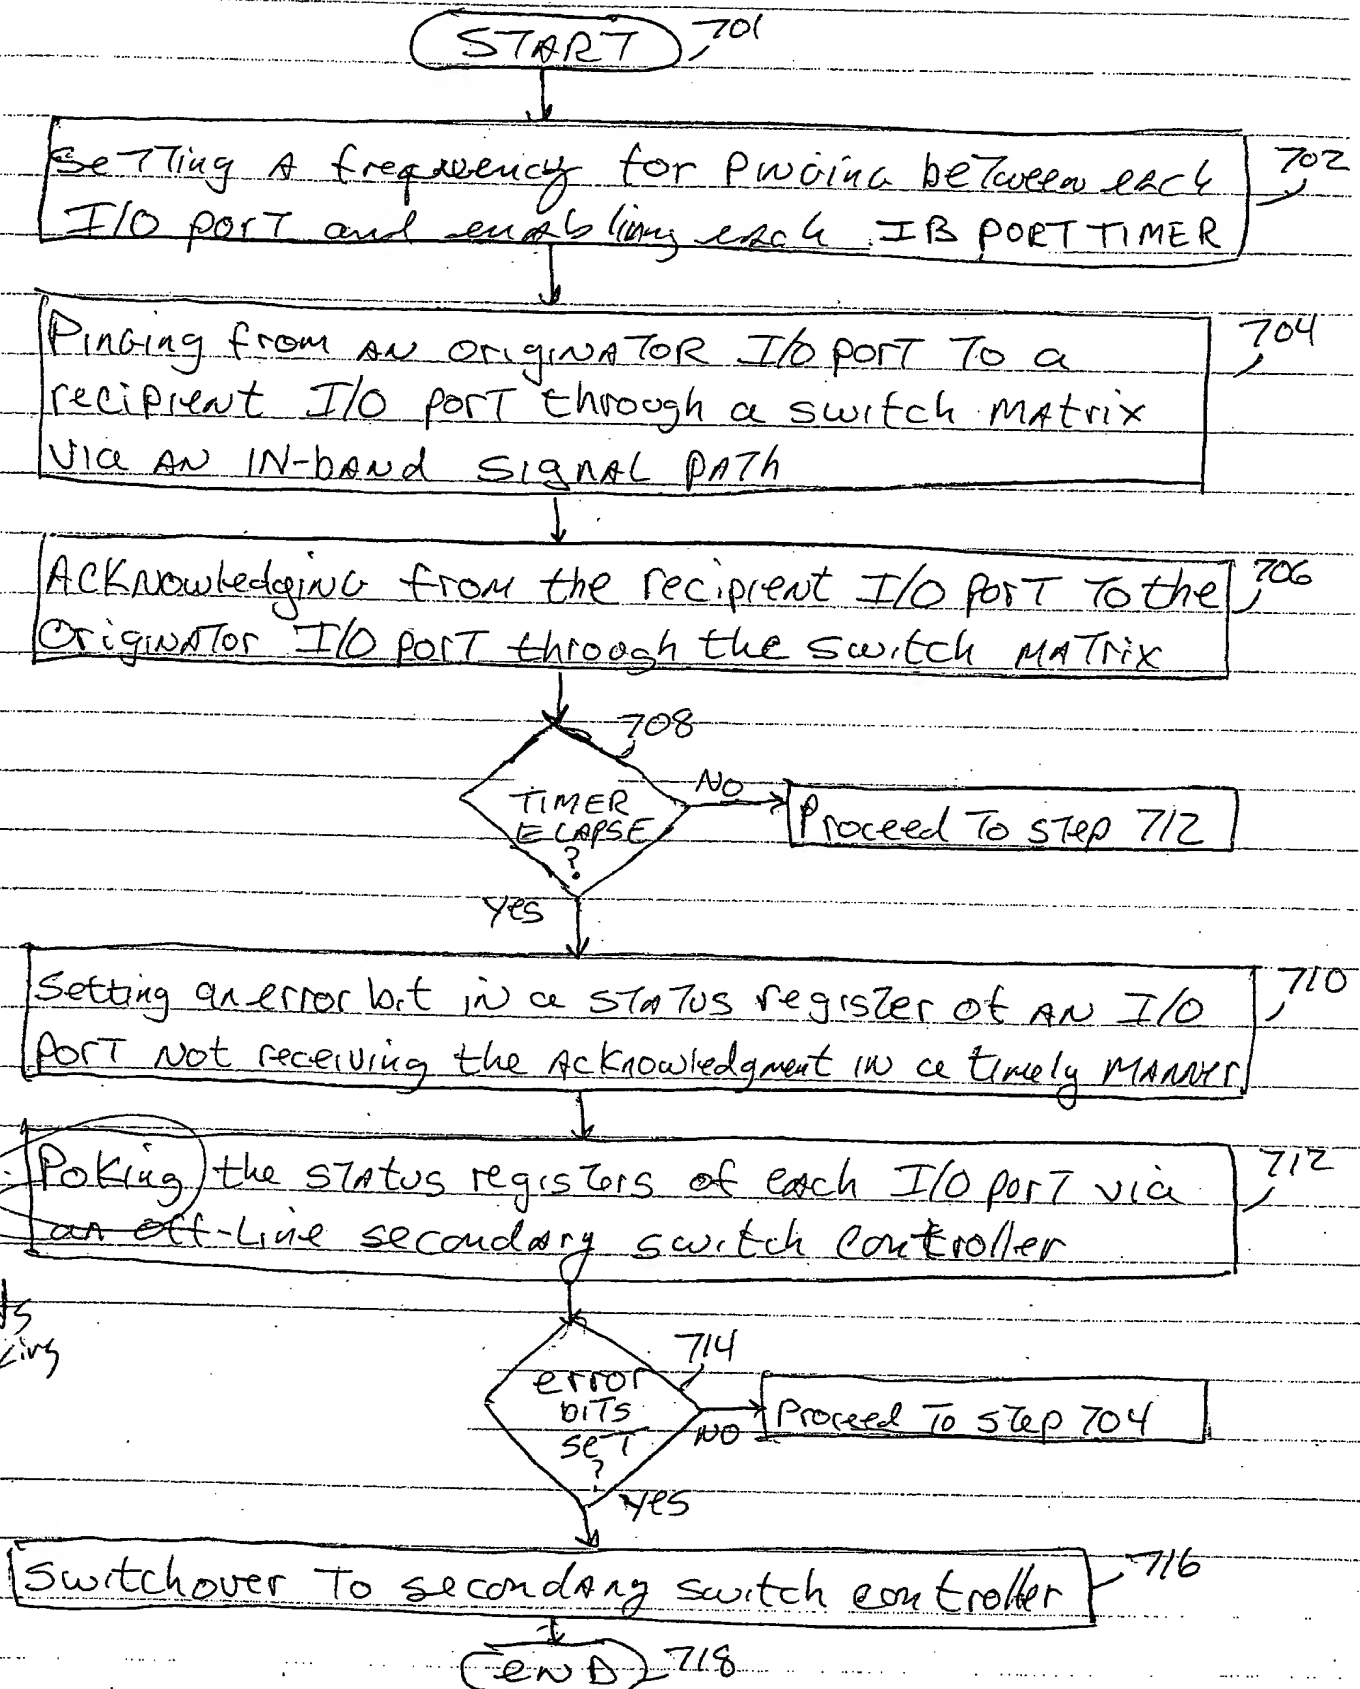 START 701
Setting A frequency for Pinging between each 702
I/O port and enabling each IB PORT TIMER
Pinging from AN ORIGINATOR I/O port To a 704
recipient I/O port through a switch MAtrix
via AN IN-bAND SIGNAL PATh
Acknowledging from the recipient I/O port To the 706
Originator I/O port through the switch MATrix
708
TIMER
ELAPSE
?
NO
Proceed To step 712
yes
Setting an error bit in a STATUS register of AN I/O 710
PorT Not receiving the Acknowledgment in a timely MANNER
Poking the STATUS registers of each I/O port via 712
an off-Line secondary switch controller
714
error
biTs
seT
?
NO
Proceed To step 704
yes
Switchover To secondary switch controller 716
enD 718